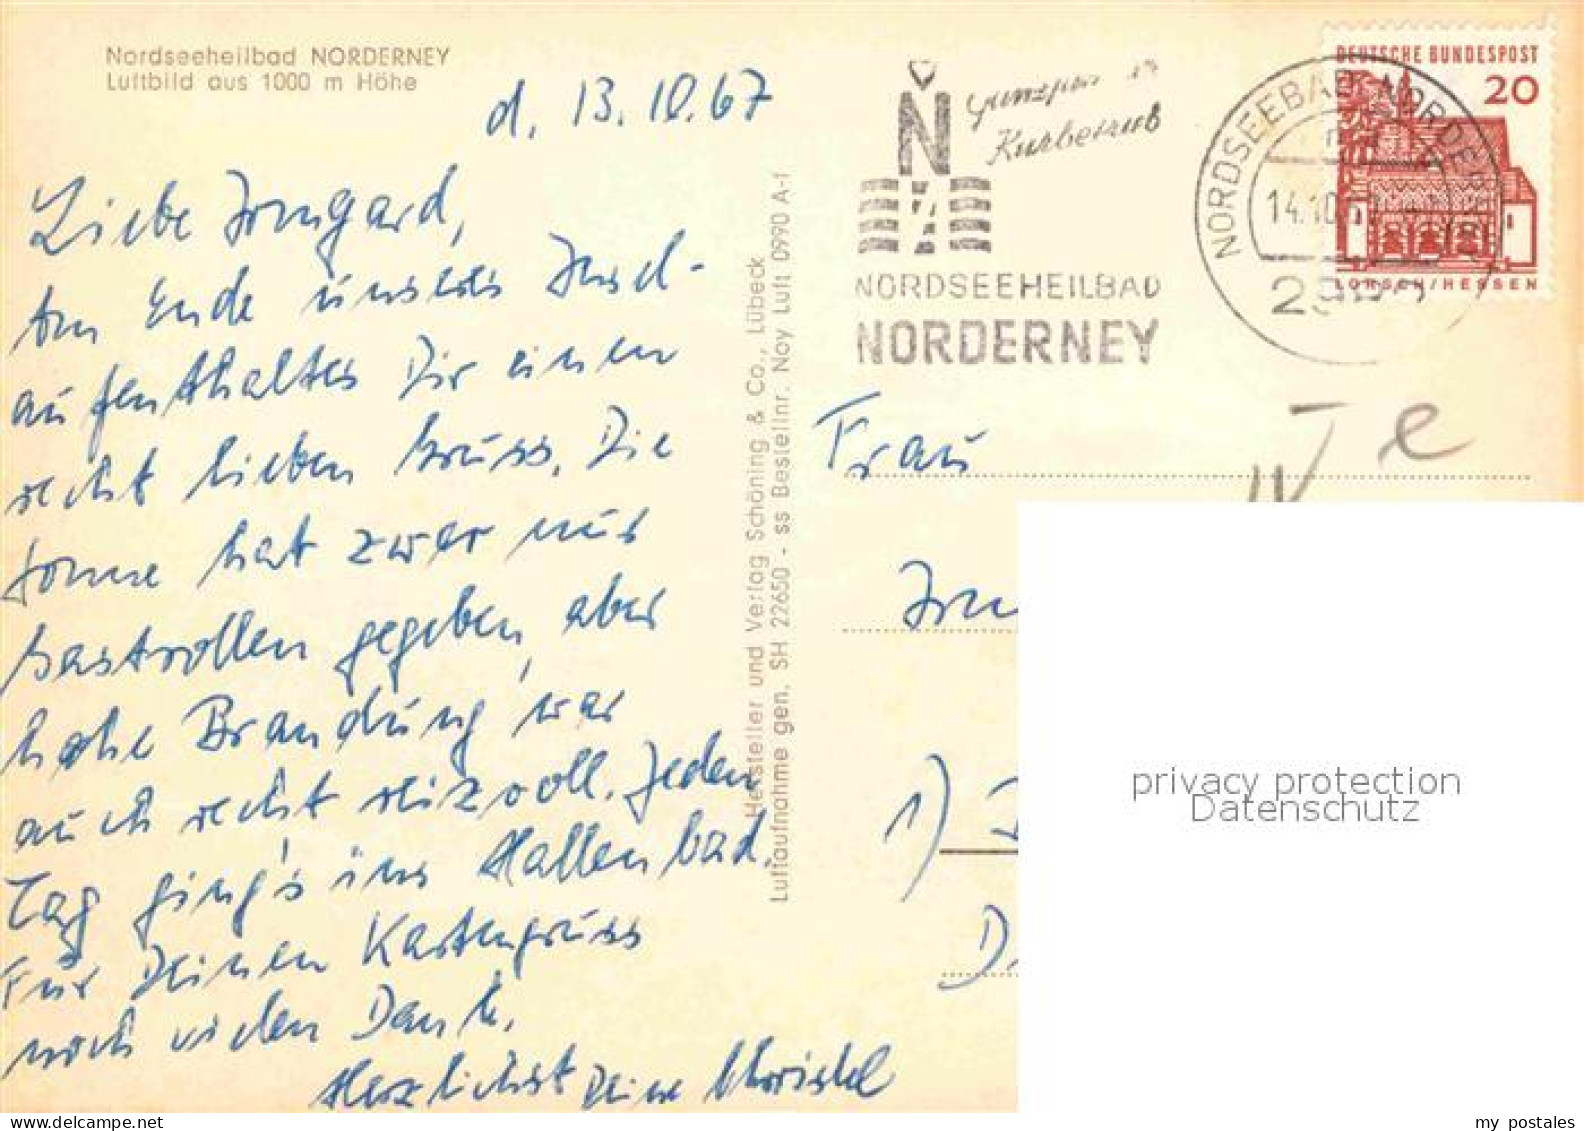 Nordseeheilbad NORDERNEY
Luftbild aus 1000 m Höhe
d. 13.10.67
Liebe Irmgard,
Am Ende unseres Insel-
aufenthaltes Dir einen
recht lieben Gruss. Die
Sonne hat zwar nur
Gastrollen gegeben, aber
hohe Brandung war
auch recht reizvoll. Jeden
Tag ging's ins Hallenbad.
Für Deinen Kartengruss
noch vielen Dank.
Herzlichst Deine Christel
Hersteller und Verlag Schöning & Co., Lübeck
Luftaufnahme gen. SH 22650 - ss Bestellnr. Noy Luft 0990 A-1
N
Kurbetrieb
NORDSEEHEILBAD
NORDERNEY
NORDSEEBAD NORDERNEY
14.10.
DEUTSCHE BUNDESPOST
20
LORSCH/HESSEN
Frau
1)
D.
privacy protection
Datenschutz
my postales